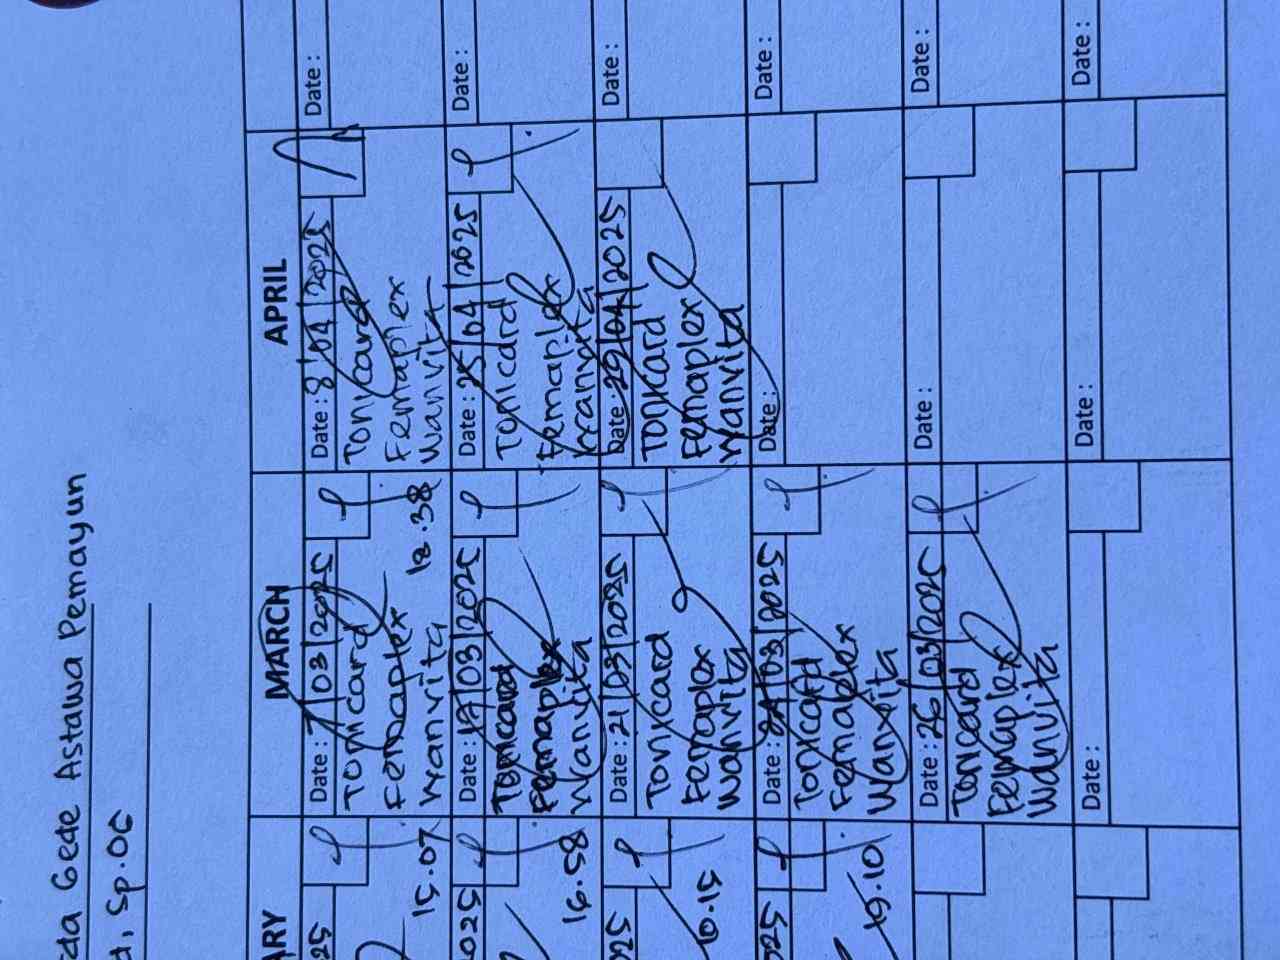 da Gede Astawa Pemayun
Sp.OG
ARY
MARCH
APRIL
25
15.07
Date : 7/03/2025
Tonicard
Femaplex
Wanvita
18.38
Date : 8/04/2025
Tonicard
Femaplex
Wanvita
Date :
2025
16.58
Date : 19/03/2025
Tonicard
Femaplex
Wanvita
Date : 25/04/2025
Tonicard
Femaplex
Wanvita
Date :
025
Date : 21/03/2025
Tonicard
Femaplex
Wanvita
Date : 29/04/2025
Tonicard
Femaplex
Wanvita
Date :
025
19.10
Date : /03/2025
Tonicard
Femaplex
Wanvita
Date :
Date :
Date : 26/03/2025
Tonicard
Femaplex
Wanvita
Date :
Date :
Date :
Date :
Date :